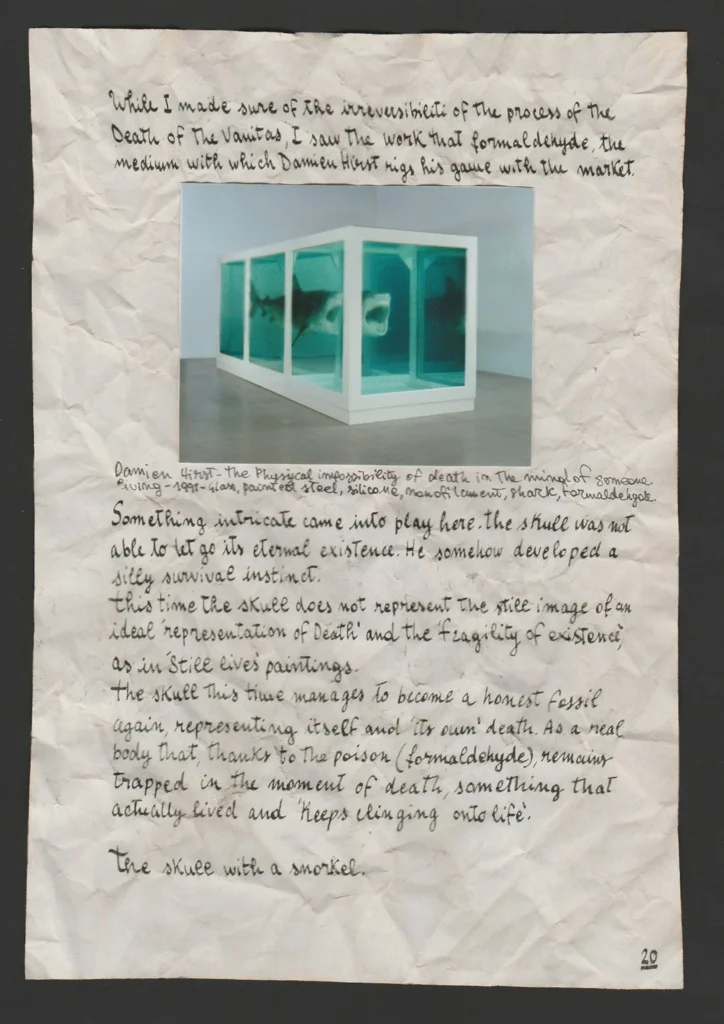 While I made sure of the irreversibiliti of the process of the
Death of the Vanitas, I saw the work that formaldehyde, the
medium with which Damien Hirst rigs his game with the market.
Damien Hirst - the Physical impossibility of death in the mind of someone
living - 1991 - Glass, painted steel, silicone, monofilament, shark, formaldehyde.
Something intricate came into play here. the skull was not
able to let go its eternal existence. He somehow developed a
silly survival instinct.
this time the skull does not represent the still image of an
ideal 'representation of Death' and the 'fragility of existence',
as in 'Still lives' paintings.
the skull this time manages to become a honest fossil
again, representing itself and 'its own' death. As a real
body that, thanks to the poison (formaldehyde), remains
trapped in the moment of death, something that
actually lived and 'Keeps clinging onto life'.
the skull with a snorkel.
20